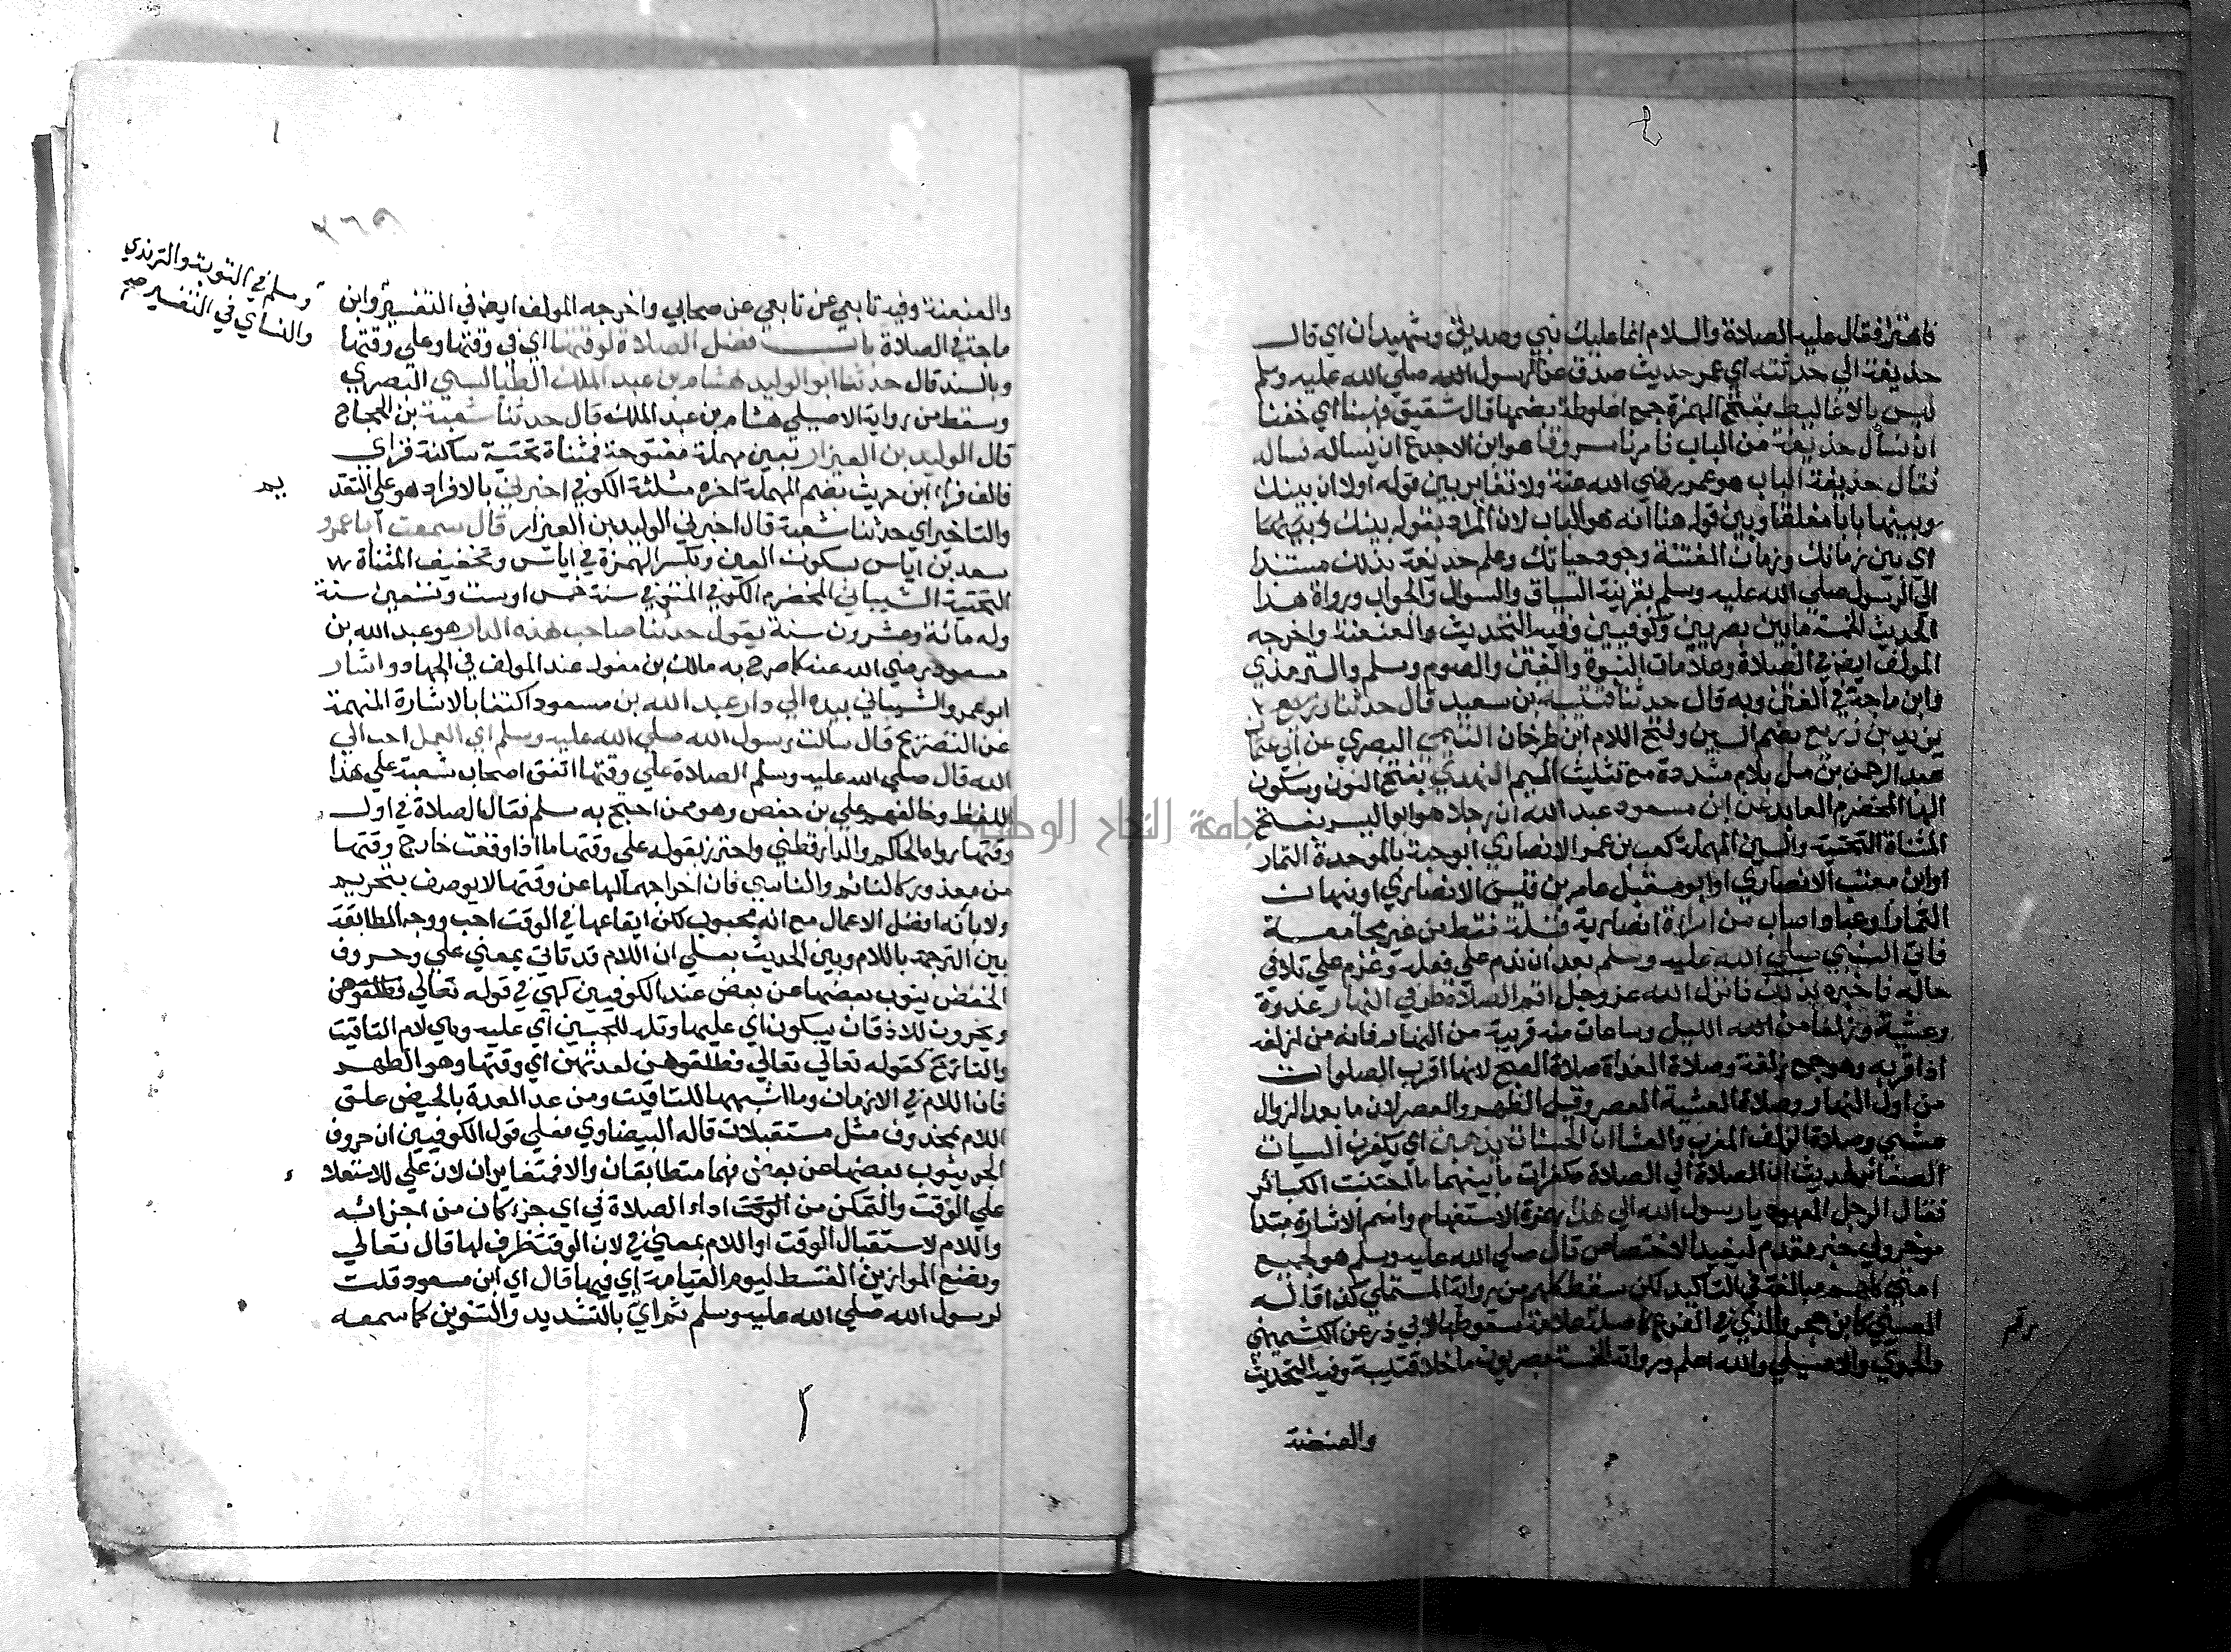 فاهتز فقال عليه الصلاة والسلام انما عليك نبي وصديق وشهيدان اي قال
حذيفة اني حدثته اي عمر حديث صدق عن الرسول الله صلي الله عليه وسلم
ليس بالاغاليط بفتح الهمزة جمع اغلوطة بضمها قال شقيق فهبنا اي خفنا
ان نسأل حذيفة من الباب فامرنا مسروقا هو ابن الاجدع ان يساله فساله
فقال حذيفة الباب هو عمر رضي الله عنه ولا تغاير بين قوله اولا ان بينك
وبينها بابا مغلقا وبين قوله هنا انه هو الباب لان المراد بقوله بينك وبينهما
اي بين زمانك وزمان الفتنة وجود حياتك وعلم حذيفة بذلك مستندا
الي الرسول صلي الله عليه وسلم بقرينة السياق والسوال والجواب ورواة هذا
الحديث الخمسة ما بين بصريين وكوفيين وفيه التحديث والعنعنة واخرجه
المولف ايضا في الصلاة وعلامات النبوة والفتن والصوم ومسلم والترمذي
وابن ماجة في الفتن وبه قال حدثنا قتيبة بن سعيد قال حدثنا
يزيد بن زريع بضم السين وفتح اللام ابن طرخان التيمي البصري عن ابي عثمان
عبد الرحمن بن مل بلام مشددة مع تثليث الميم النهدي بفتح النون وسكون
الها المخضرم العابد عن ابن مسعود عبد الله ان رجلا هو ابو اليسر بفتح
المثناة التحتية والسين المهملة كعب بن عمرو الانصاري ابو حبة بالموحدة التمار
او ابن معتب الانصاري او ابو مقبل عامر بن قيس الانصاري او نبهان
التمار او عباد اصاب من امراة انصارية قبلة فقط من غير مجامعة
فاتي النبي صلي الله عليه وسلم بعد ان ندم علي فعله وعزم علي تلافي
حاله فاخبره بذلك فانزل الله عز وجل اقم الصلاة طرفي النهار غدوة
وعشية وزلفا من الليل وساعات منه قريبة من النهار فانه من ازلفه
اذا قربه وهو جمع زلفة وصلاة الغداة صلاة الصبح لانها اقرب الصلوات
من اول النهار وصلاة العشية العصر وقيل الظهر والعصر لان ما بعد الزوال
عشي وصلاة الزلف المغرب والعشا ان الحسنات يذهبن اي يكفرن السيات
الصغائر لحديث ان الصلاة الي الصلاة مكفرات ما بينهما ما اجتنبت الكبائر
فقال الرجل المعهود يا رسول الله الي هذا بهمزة الاستفهام واسم الاشارة مبتدا
موخر ولي خبر مقدم ليفيد الاختصاص قال صلي الله عليه وسلم هو لجميع
امتي كلهم مبالغة في التاكيد لكن سقط كلهم من رواية المستملي كذا قاله
العيني كابن حجر والذي في الفرع كاصله علامة سقوطها لابي ذر عن الكشميهني
والحموي والاصيلي والله اعلم ورواته الخمسة بصريون ما خلا قتيبة وفيه التحديث
والعنعنة
ومسلم في التوبة والترمذي
والنساي في التفسير صح
والعنعنة وفيه تابعي عن تابعي عن صحابي واخرجه المولف ايضا في التفسير وابن
ماجة في الصلاة باب فضل الصلاة لوقتها اي في وقتها وعلي وقتها
وبالسند قال حدثنا ابو الوليد هشام بن عبد الملك الطيالسي البصري
وسقط من رواية الاصيلي هشام بن عبد الملك قال حدثنا شعبة بن الحجاج
قال الوليد بن العيزار بعين مهملة مفتوحة فمثناة تحتية ساكنة فزاي
فالف فراء ابن حريث بضم المهملة اخره مثلثة الكوفي اخبرني بالافراد هو علي التقد
يم
والتاخير اي حدثنا شعبة قال اخبرني الوليد بن العيزار قال سمعت ابا عمرو
سعد بن اياس بسكون العين وبكسر الهمزة في اياس وتخفيف المثناة
التحتية الشيباني المخضرم الكوفي المتوفي سنة خمس او ست وتسعين سنة
وله مائة وعشرون سنة يقول حدثنا صاحب هذه الدار هو عبد الله بن
مسعود رضي الله عنه كما صرح به مالك بن مغول عند المولف في الجهاد واشار
ابو عمرو الشيباني بيده الي دار عبد الله بن مسعود اكتفا بالاشارة المفهمة
عن التصريح قال سالت رسول الله صلي الله عليه وسلم اي العمل احب الي
الله قال صلي الله عليه وسلم الصلاة علي وقتها اتفق اصحاب شعبة علي هذا
اللفظ وخالفهم علي بن حفص وهو ممن احتج به مسلم فقال الصلاة في اول
وقتها رواه الحاكم والدارقطني واحترز بقوله علي وقتها ما اذا وقعت خارج وقتها
من معذور كالنائم والناسي فان اخراجهما لها عن وقتها لا يوصف بتحريم
ولا بانه افضل الاعمال مع انه محبوب لكن ايقاعها في الوقت احب ووجه المطابقة
بين الترجمة باللام وبين الحديث بعلي ان اللام قد تاتي بمعني علي وحروف
الخفض ينوب بعضها عن بعض عند الكوفيين كهي في قوله تعالي فطلقوهن
ويخرون للاذقان يبكون اي عليها وتله للجبين اي عليه وهي لام التاقيت
والتاريخ كقوله تعالي تعالي فطلقوهن لعدتهن اي وقتها وهو الطهر
فان اللام في الازمان وما اشبهها للتاقيت ومن عد العدة بالحيض علق
اللام بمحذوف مثل مستقبلات قاله البيضاوي فعلي قول الكوفيين ان حروف
الجر ينوب بعضها عن بعض فهما متطابقان والا فمتغايران لان علي للاستعلا
علي الوقت والتمكن من الوقت اداء الصلاة في اي جزء كان من اجزائه
واللام لاستقبال الوقت او اللام بمعني في لان الوقت ظرف لها قال تعالي
ونضع الموازين القسط ليوم القيامة اي فيها قال اي ابن مسعود قلت
لرسول الله صلي الله عليه وسلم ثم اي بالتشديد والتنوين كما سمعه
جامعة النجاح الوطنية